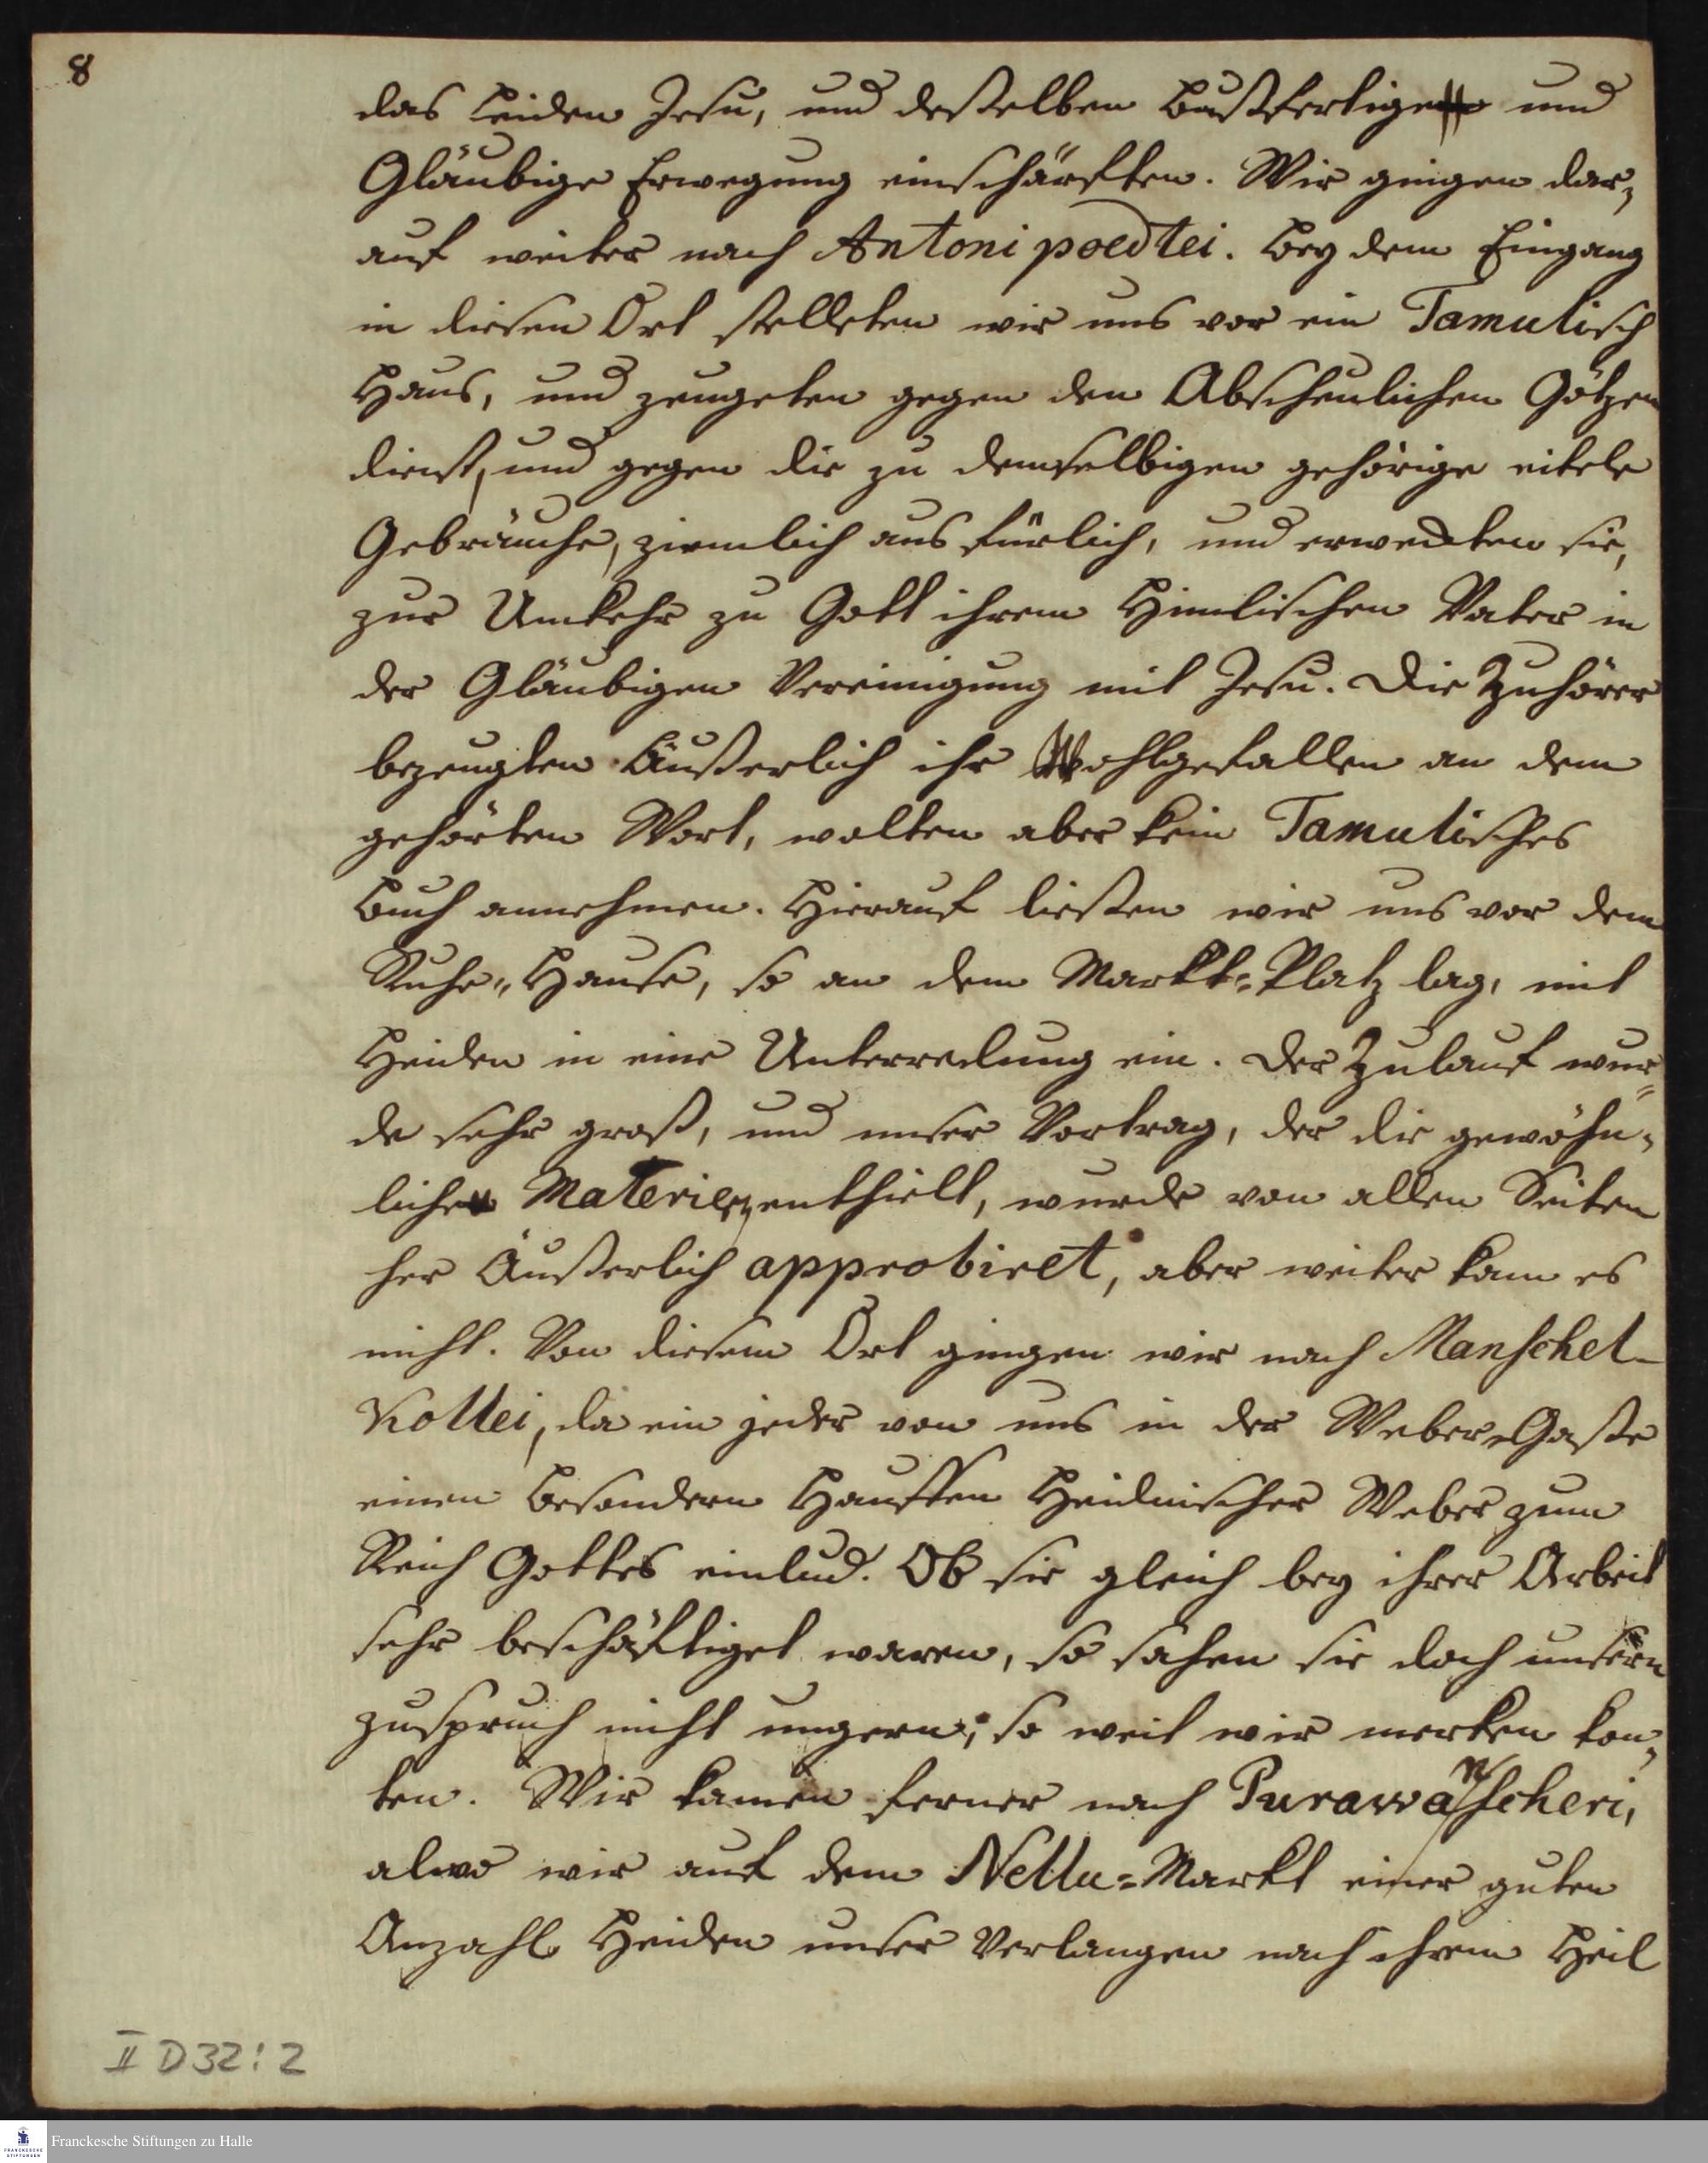 8
das Leiden Jesu, und deßelben bußfertige und
Gläubige Erwegung einschärften. Wir gingen dar-
auf weiter nach Antoni poedtei. Bey dem Eingang
in diesen Ort stelleten wir uns vor ein Tamulisch
Haus, und zeugeten gegen den Abscheulichen Götzen
dienst, und gegen die zu demselbigen gehörige eitele
Gebräuche, ziemlich ausfürlich, und erweckten sie,
zur Umkehr zu Gott ihrem Himlischen Vater in
der Gläubigen Vereinigung mit Jesu. Die Zuhörer
bezeugten Äußerlich ihr Wohlgefallen an dem
gehörten Wort, wolten aber kein Tamulisches
Buch annehmen. Hierauf ließen wir uns vor dem
Ruhe-Hause, so an dem Markt-Platz lag, mit
Heiden in eine Unterredung ein. Der Zulauf wur-
de sehr groß, und unser Vortrag, der die gewöhn-
liche Materien enthielt, wurde von allen Seiten
her Äußerlich approbiret, aber weiter kam es
nicht. Von diesem Ort gingen wir nach Manschel-
Kollei, da ein jeder von uns in der Weber-Gaße
einen besondern Hauffen Heidnischer Weber zum
Reich Gottes einlud. Ob sie gleich bey ihrer Arbeit
sehr beschäftiget waren, so sahen sie doch unsern
zuspruch nicht ungern, so weit wir merken kon-
ten. Wir kamen ferner nach Purawanscheri,
alwo wir auf dem Nellu-Markt einer guten
Anzahl Heiden unser Verlangen nach ihrem Heil
II D32:2
FRANCKESCHE STIFTUNGEN
Franckesche Stiftungen zu Halle